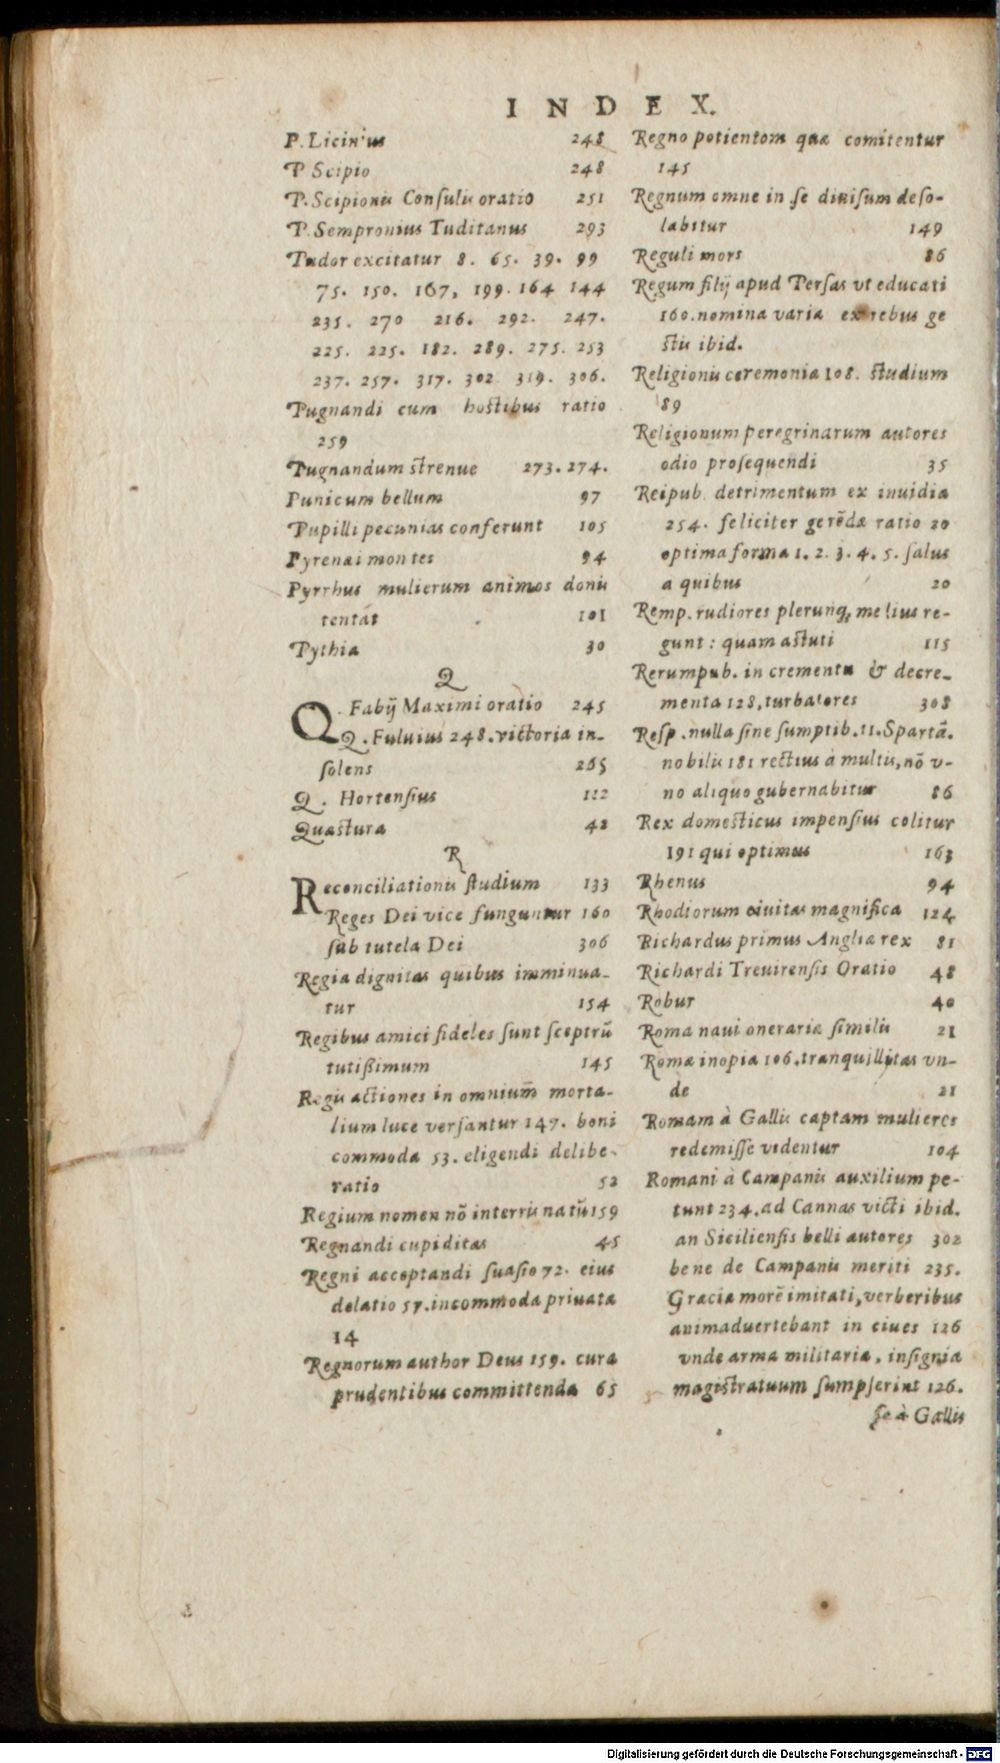 INDEX.
P. Licinius 248
P Scipio 248
P. Scipionis Consulis oratio 251
P. Sempronius Tuditanus 293
Pudor excitatur 8. 65. 39. 99
75. 150. 167, 199. 164 144
235. 270 216. 292. 247.
225. 225. 182. 289. 275. 253
237. 257. 317. 302 319. 306.
Pugnandi cum hostibus ratio
259
Pugnandum strenue 273. 274.
Punicum bellum 97
Pupilli pecunias conferunt 105
Pyrenæi montes 94
Pyrrhus mulierum animos donis
tentat 101
Pythia 30
Q
Q. Fabij Maximi oratio 245
Q. Fuluius 248. victoria in-
solens 265
Q. Hortensius 112
Quæstura 42
R
Reconciliationis studium 133
Reges Dei vice funguntur 160
sub tutela Dei 306
Regia dignitas quibus imminua-
tur 154
Regibus amici fideles sunt sceptrũ
tutißimum 145
Regis actiones in omniũm morta-
lium luce versantur 147. boni
commoda 53. eligendi delibe-
ratio 52
Regium nomen nõ interrũ natũ 159
Regnandi cupiditas 45
Regni acceptandi suasio 72. eius
delatio 57. incommoda priuata
14
Regnorum author Deus 159. cura
prudentibus committenda 65
Regno potientem quæ comitentur
145
Regnum omne in se diuisum deso-
labitur 149
Reguli mors 86
Regum filij apud Persas vt educati
160. nomina varia ex rebus ge
stis ibid.
Religionis ceremonia 108. studium
89
Religionum peregrinarum autores
odio prosequendi 35
Reipub. detrimentum ex inuidia
254. feliciter gerẽdæ ratio 20
optima forma 1. 2. 3. 4. 5. salus
a quibus 20
Remp. rudiores plerunq; melius re-
gunt: quam astuti 115
Rerumpub. in crementa & decre-
menta 128, turbatores 308
Resp. nulla sine sumptib. 11. Spartã.
nobilis 181 rectius à multis, nõ v-
no aliquo gubernabitur 86
Rex domesticus impensius colitur
191 qui optimus 163
Rhenus 94
Rhodiorum ciuitas magnifica 124
Richardus primus Angliæ rex 81
Richardi Treuirensis Oratio 48
Robur 40
Roma naui onerariæ similis 21
Romæ inopia 106. tranquillitas vn-
de 21
Romam à Gallis captam mulieres
redemisse videntur 104
Romani à Campanis auxilium pe-
tunt 234. ad Cannas victi ibid.
an Siciliensis belli autores 302
bene de Campanis meriti 235.
Græciæ morẽ imitati, verberibus
animaduertebant in ciues 126
vnde arma militaria, insignia
magistratuum sumpserint 126.
se à Gallis
Digitalisierung gefördert durch die Deutsche Forschungsgemeinschaft - DFG